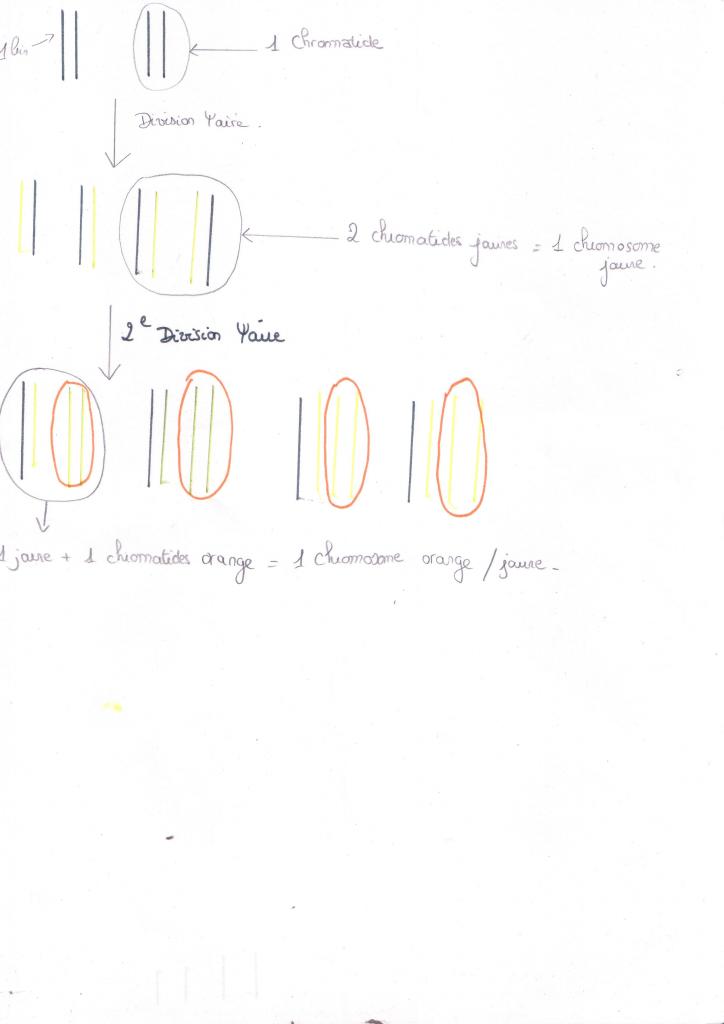 1 brin
1 Chromatide
Division Ψaire.
2 chromatides jaunes = 1 chromosome
jaune.
2e Division Ψaire
1 jaune + 1 chromatides orange = 1 chromosome orange / jaune.